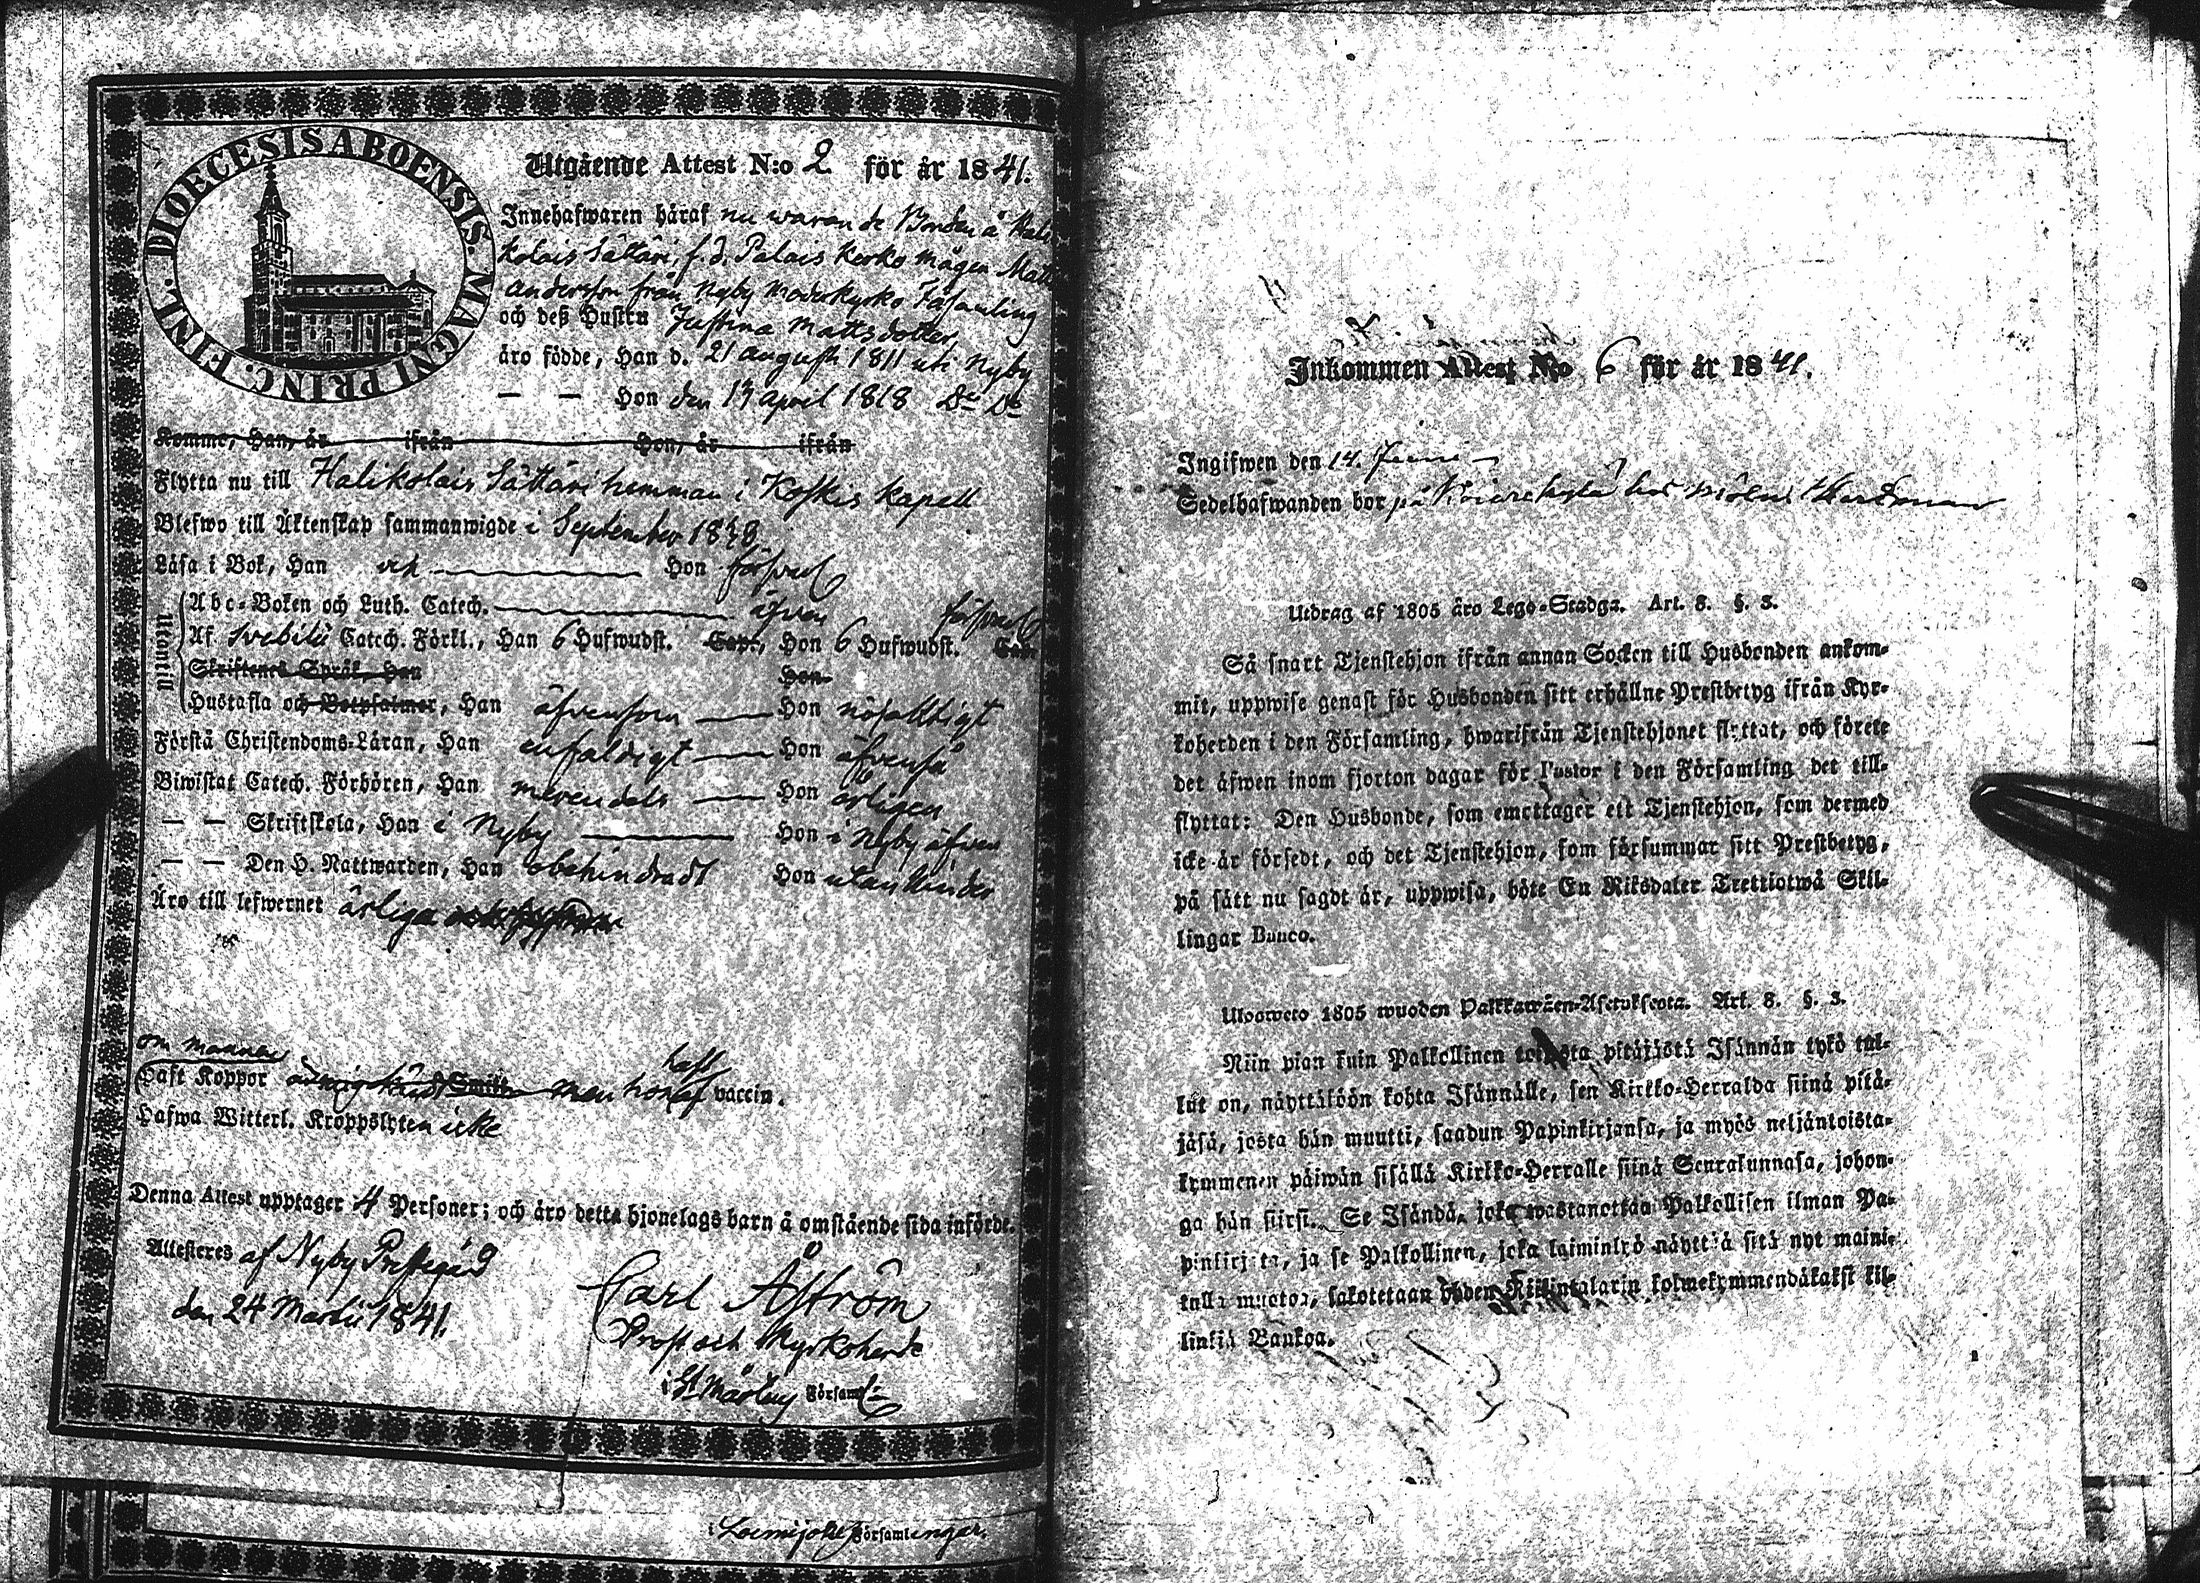 DIOECESIS ABOENSIS. MAGNI PRINC. FINL.
Utgående Attest N:o 2 för år 1841.
Innehafwaren häraf nu warande Bonden å Hali
kolais Sätteri, f. d. Palais Kerko mågen Matts
Andersson från Nyby moderkyrko Församling
och deß Hustru Justina Mattsdotter,
äro födde, Han d. 21 Augusti 1811 uti Nyby
— — Hon den 13 April 1818 Do Do
Komne, Han, år ifrån Hon, år ifrån
Flytta nu till Halikolais Sätteri hemman i Koskis Kapell
Blefwo till Äktenskap sammanwigde i September 1838
Läsa i Bok, Han Hon försvarl
Utantill
Abc-Boken och Luth. Catech. äfven försvarl
Af Svebilii Catech. Förkl., Han 6 Hufwudst. Cap., Hon 6 Hufwudst. Cap.
Skriftenes Språk, Han Hon
Hustafla och Botpsalmer, Han äfvensom — Hon nöjaktigt
Förstå Christendoms-Läran, Han enfaldigt — Hon äfvenså
Biwistat Catech. Förhören, Han merendels — Hon årligen
— — Skriftskola, Han i Nyby — Hon i Nyby äfven
— — Den H. Nattwarden, Han obehindradt Hon utan hinder
Äro till lefwernet ärliga
om mannen
Haft Koppor men hon haft vaccin.
Hafwa Witterl. Kroppslyten icke
Denna Attest upptager 4 Personer; och äro detta hjonelags barn å omstående sida införde.
Attesteras af Nyby Prestegård
den 24 Martii 1841.
Carl Åström
Prost och Kyrkoherde
i St Mårtens Församl.
i Loimijoki Församlingar.
Inkommen Attest No 6 för år 1841.
Ingifwen den 14. Junii —
Sedelhafwanden bor på
Utdrag af 1805 åro Lego-Stadga. Art. 8. §. 3.
Så snart Tjenstehjon ifrån annan Socken till Husbonden ankom-
mit, uppwise genast för Husbonden sitt erhållne Prestbetyg ifrån Kyr-
koherden i den Församling, hwarifrån Tjenstehjonet flyttat, och förete
det äfwen inom fjorton dagar för Pastor i den Församling det till-
flyttat: Den Husbonde, som emottager ett Tjenstehjon, som dermed
icke är försedt, och det Tjenstehjon, som försummar sitt Prestbetyg,
på sätt nu sagdt är, uppwisa, böte En Riksdaler Trettiotwå Skil-
lingar Banco.
Ulosweto 1805 wuoden Palkkawäen-Asetuksesta. Art. 8. §. 3.
Niin pian kuin Palkollinen toisesta pitäjästä Isännän tykö tul-
lut on, näyttäköön kohta Isännälle, sen Kirkko-Herralda siinä pitä-
jäsä, josta hän muutti, saadun Papinkirjansa, ja myös neljäntoista-
kymmenen päiwän sisällä Kirkko-Herralle siinä Seurakunnasa, johon-
ga hän siirsi. Se Isändä, joka wastanottaa Palkollisen ilman Pa-
pinkirjata, ja se Palkollinen, joka laiminlyö näyttää sitä nyt maini-
tulla muotoa, sakotetaan yhden Riikintalarin kolmekymmendäkaksi kil-
linkiä Bankoa.